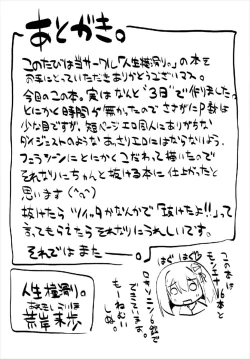 あとがき。
このたびは当サークル「人生横滑り。」の本を
お手にとっていただきありがとうございマス。
今回のこの本。実はなんと"3日"で作りました。
とにかく時間が無かったので さすがにP数は
少な目ですが、短ページエロ同人にありがちな
ダイジェストのような あっさりエロにはならないよう、
フェラシーンにとにかくこだわって描いたので
それなりにちゃんと抜ける本に仕上がったと
思います (^q^)
抜けたら ツイッタかなんかで「抜けたよ!!」って
言ってもらえたら それなりにうれしいです。
それでは また ー。
人生横滑り。
荒岸来歩
はぐ はぐ
この本は
モンエナ16本と
ロキソニン6錠で
できています。
もーねむい
しぬ。